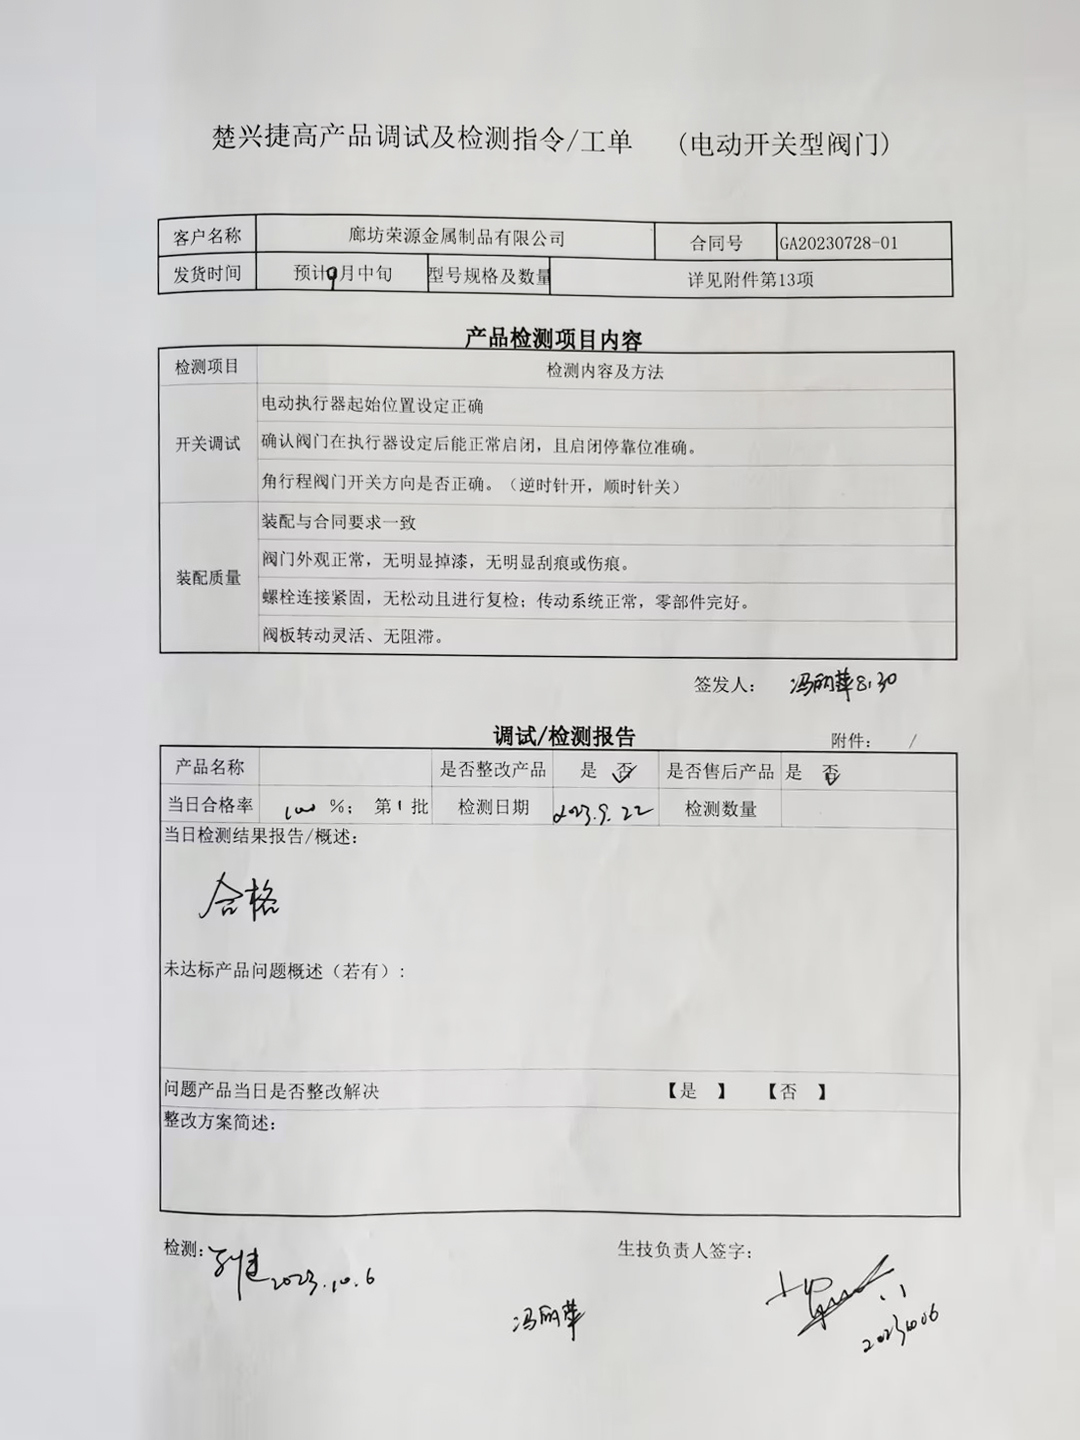 楚兴捷高产品调试及检测指令/工单 (电动开关型阀门)
客户名称 廊坊荣源金属制品有限公司 合同号 GA20230728-01
发货时间 预计9月中旬 型号规格及数量 详见附件第13项
产品检测项目内容
检测项目 检测内容及方法
电动执行器起始位置设定正确
开关调试 确认阀门在执行器设定后能正常启闭，且启闭停靠位准确。
角行程阀门开关方向是否正确。（逆时针开，顺时针关）
装配与合同要求一致
阀门外观正常，无明显掉漆，无明显刮痕或伤痕。
装配质量
螺栓连接紧固，无松动且进行复检；传动系统正常，零部件完好。
阀板转动灵活、无阻滞。
签发人： 冯丽萍8.30
调试/检测报告 附件： /
产品名称 是否整改产品 是 否 是否售后产品 是 否
当日合格率 100 %； 第1批 检测日期 2023.9.22 检测数量
当日检测结果报告/概述：
合格
未达标产品问题概述（若有）：
问题产品当日是否整改解决 【是 】 【否 】
整改方案简述：
检测： 2023.10.6 生技负责人签字：
冯丽萍
20231006